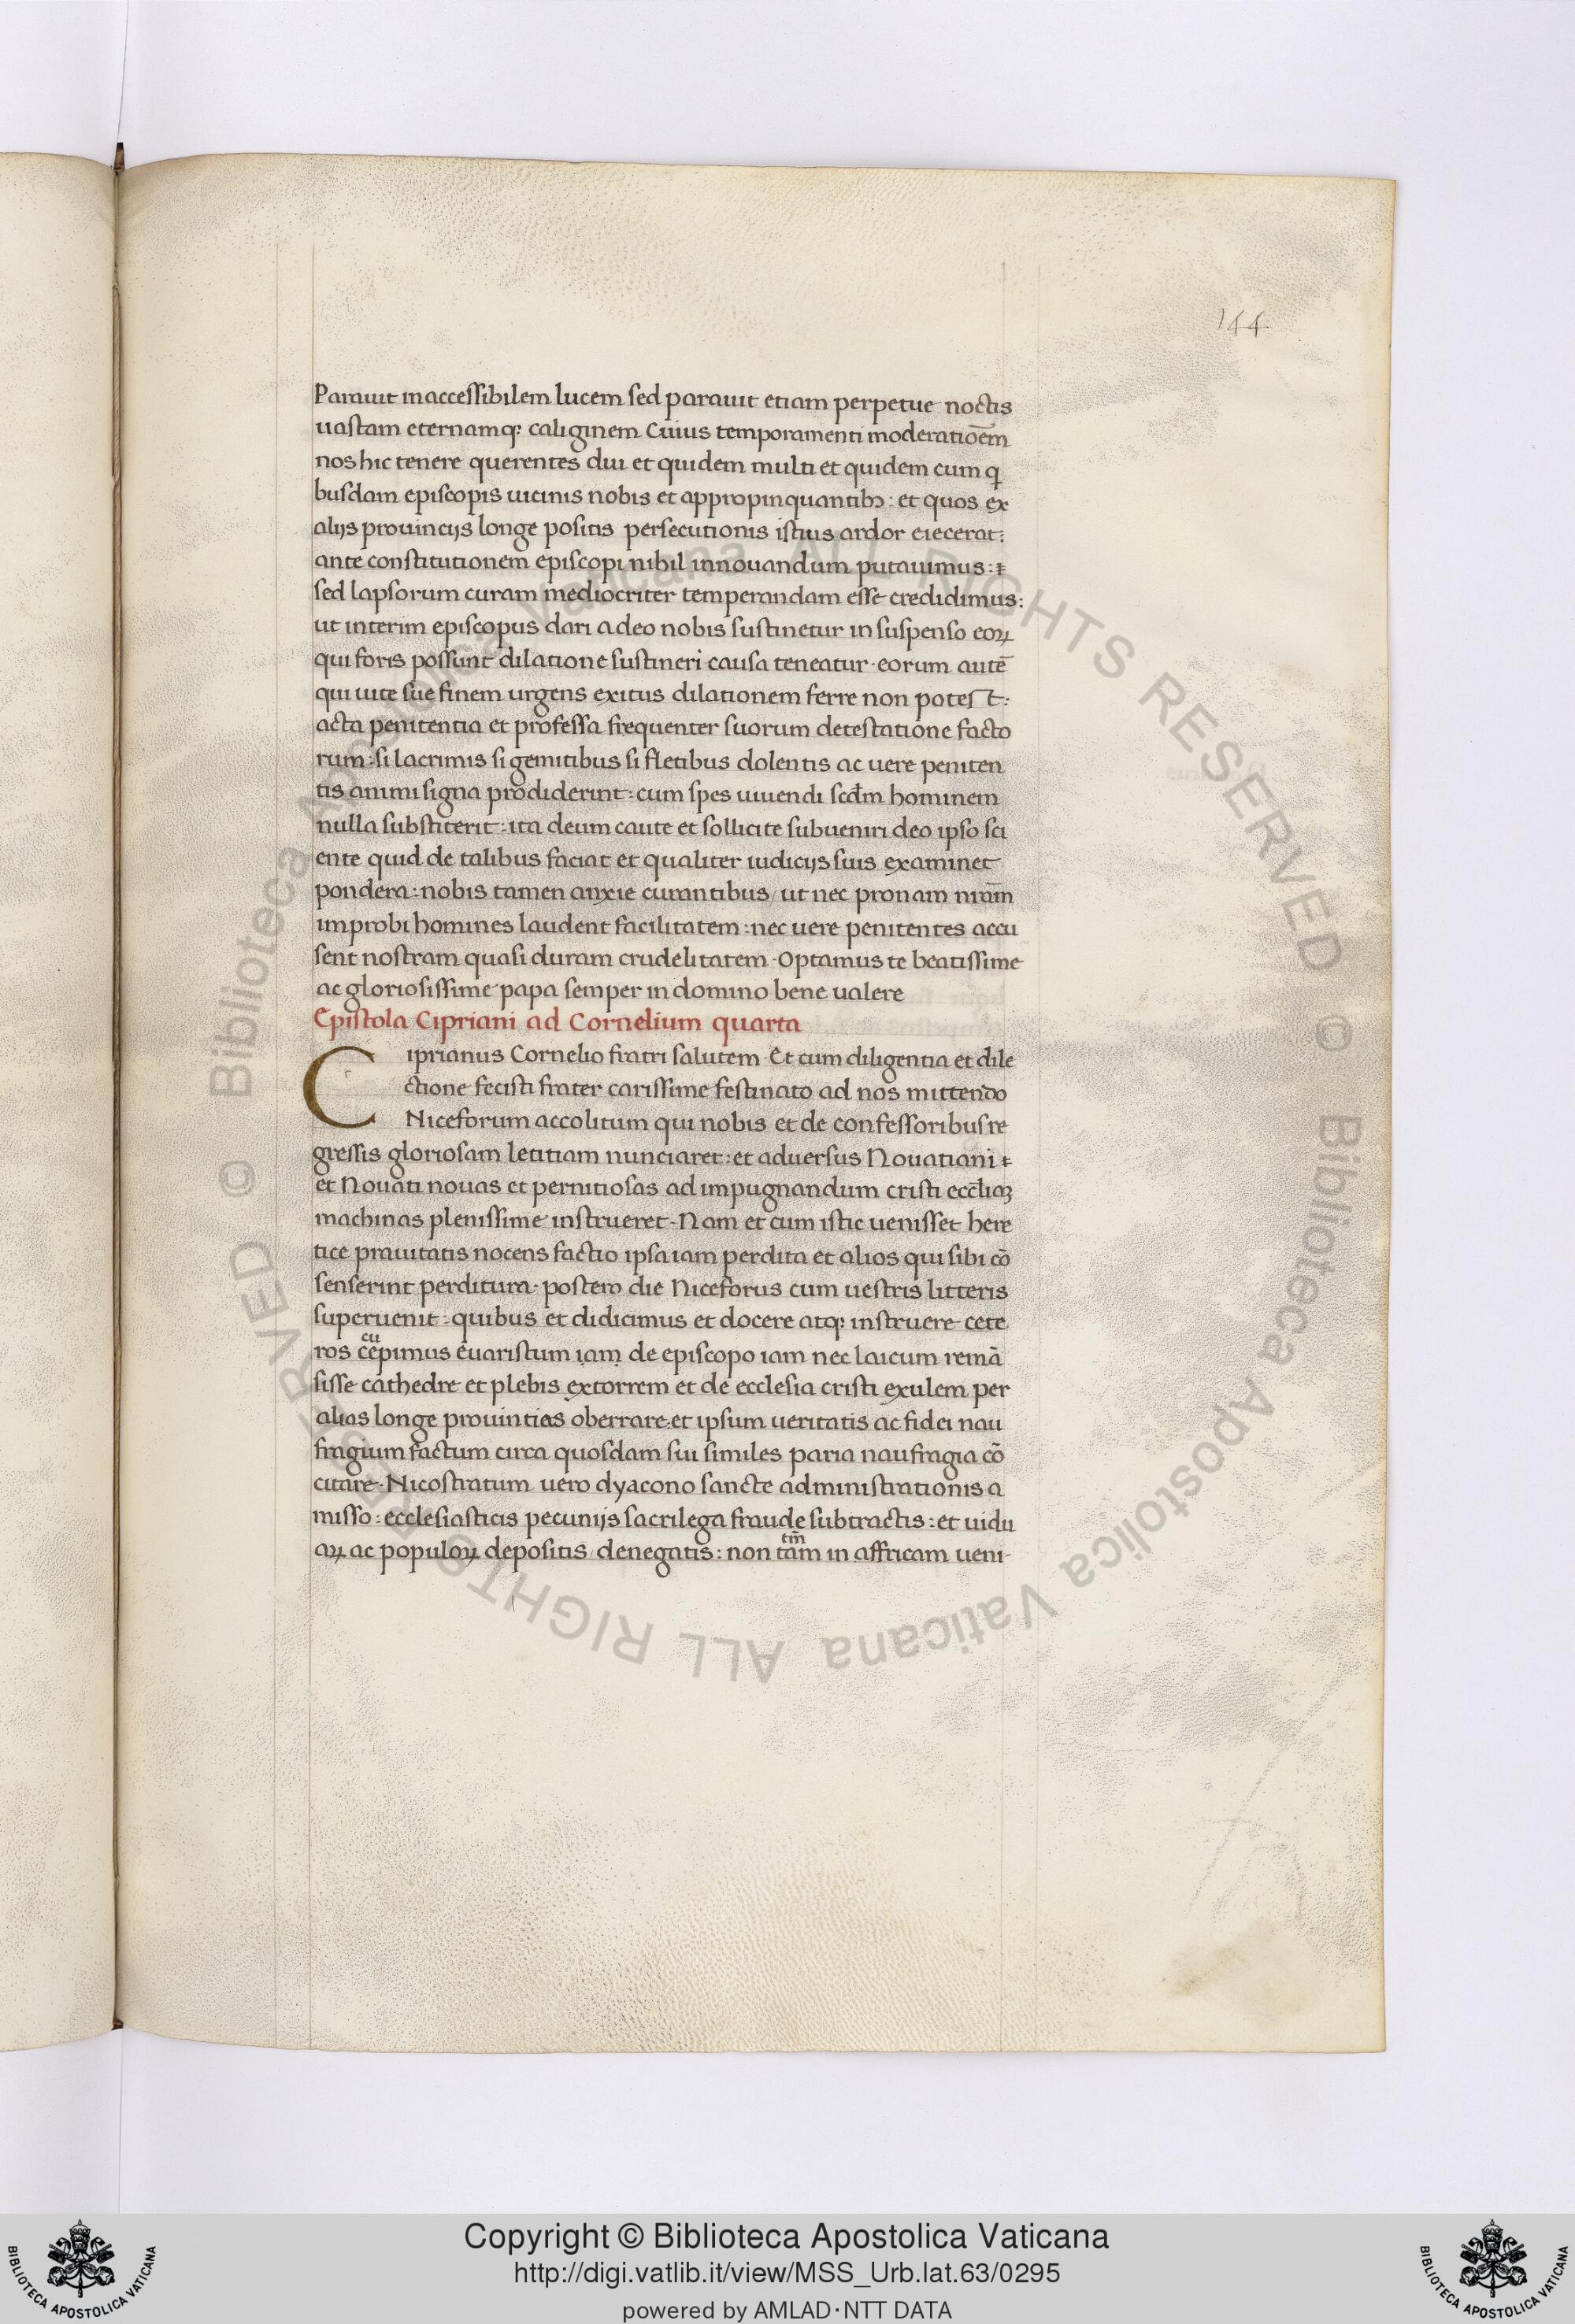 144
Parauit inaccessibilem lucem sed parauit etiam perpetue noctis
uastam eternamq; caliginem Cuius temporamenti moderatiõem
nos hic tenere querentes diu et quidem multi et quidem cum q̇
busdam episcopis uicinis nobis et appropinquantibꝫ: et quos ex
alijs prouincijs longe positis persecutionis istius ardor eiecerat:
ante constitutionem episcopi nihil innouandum putauimus:
sed lapsorum curam mediocriter temperandam esse credidimus:
ut interim episcopus dari adeo nobis sustinetur in suspenso eoꝝ
qui foris possunt dilatione sustineri causa teneatur· eorum autē
qui uite sue finem urgens exitus dilationem ferre non potest:
acta penitentia et professa frequenter suorum detestatione facto
rum: si lacrimis si gemitibus si fletibus dolentis ac uere peniten
tis animi signa prodiderint: cum spes uiuendi scd̄m hominem
nulla substiterit: ita deum caute et sollicite subueniri deo ipso sci
ente quid de talibus faciat et qualiter iudicijs suis examinet
pondera: nobis tamen anxie curantibus/ ut nec pronam nr̄am
improbi homines laudent facilitatem: nec uere penitentes accu
sent nostram quasi duram crudelitatem· Optamus te beatissime
ac gloriosissime papa semper in domino bene ualere
Epistola Cipriani ad Cornelium quarta
Ciprianus Cornelio fratri salutem Et cum diligentia et dile
ctione fecisti frater carissime festinato ad nos mittendo
Niceforum accolitum qui nobis et de confessoribus re
gressis gloriosam letitiam nunciaret: et aduersus Nouatiani
et Nouati nouas et pernitiosas ad impugnandum cristi eccl̄iaꝫ
machinas plenissime instrueret· Nam et cum istic uenisset here
tice prauitatis nocens factio ipsa iam perdita et alios qui sibi cõ
senserint perditura· postero die Niceforus cum uestris litteris
superuenit: quibus et didicimus et docere atq; instruere cete
cu
ros cepimus euaristum iam de episcopo iam nec laicum remã
sisse cathedre et plebis extorrem et de ecclesia cristi exulem per
alias longe prouintias oberrare: et ipsum ueritatis ac fidei nau
fragium factum circa quosdam sui similes paria naufragia cõ
citare· Nicostratum uero dyacono sancte administrationis a
misso: ecclesiasticis pecunijs sacrilega fraude subtractis: et uidu
tm̄
aꝝ ac populoꝝ depositis/ denegatis: non tam in affricam ueni-
© Biblioteca Apostolica Vaticana ALL RIGHTS RESERVED
© Biblioteca Apostolica Vaticana ALL RIGHTS RESERVED
Copyright © Biblioteca Apostolica Vaticana
http://digi.vatlib.it/view/MSS_Urb.lat.63/0295
powered by AMLAD·NTT DATA
BIBLIOTECA APOSTOLICA VATICANA
BIBLIOTECA APOSTOLICA VATICANA